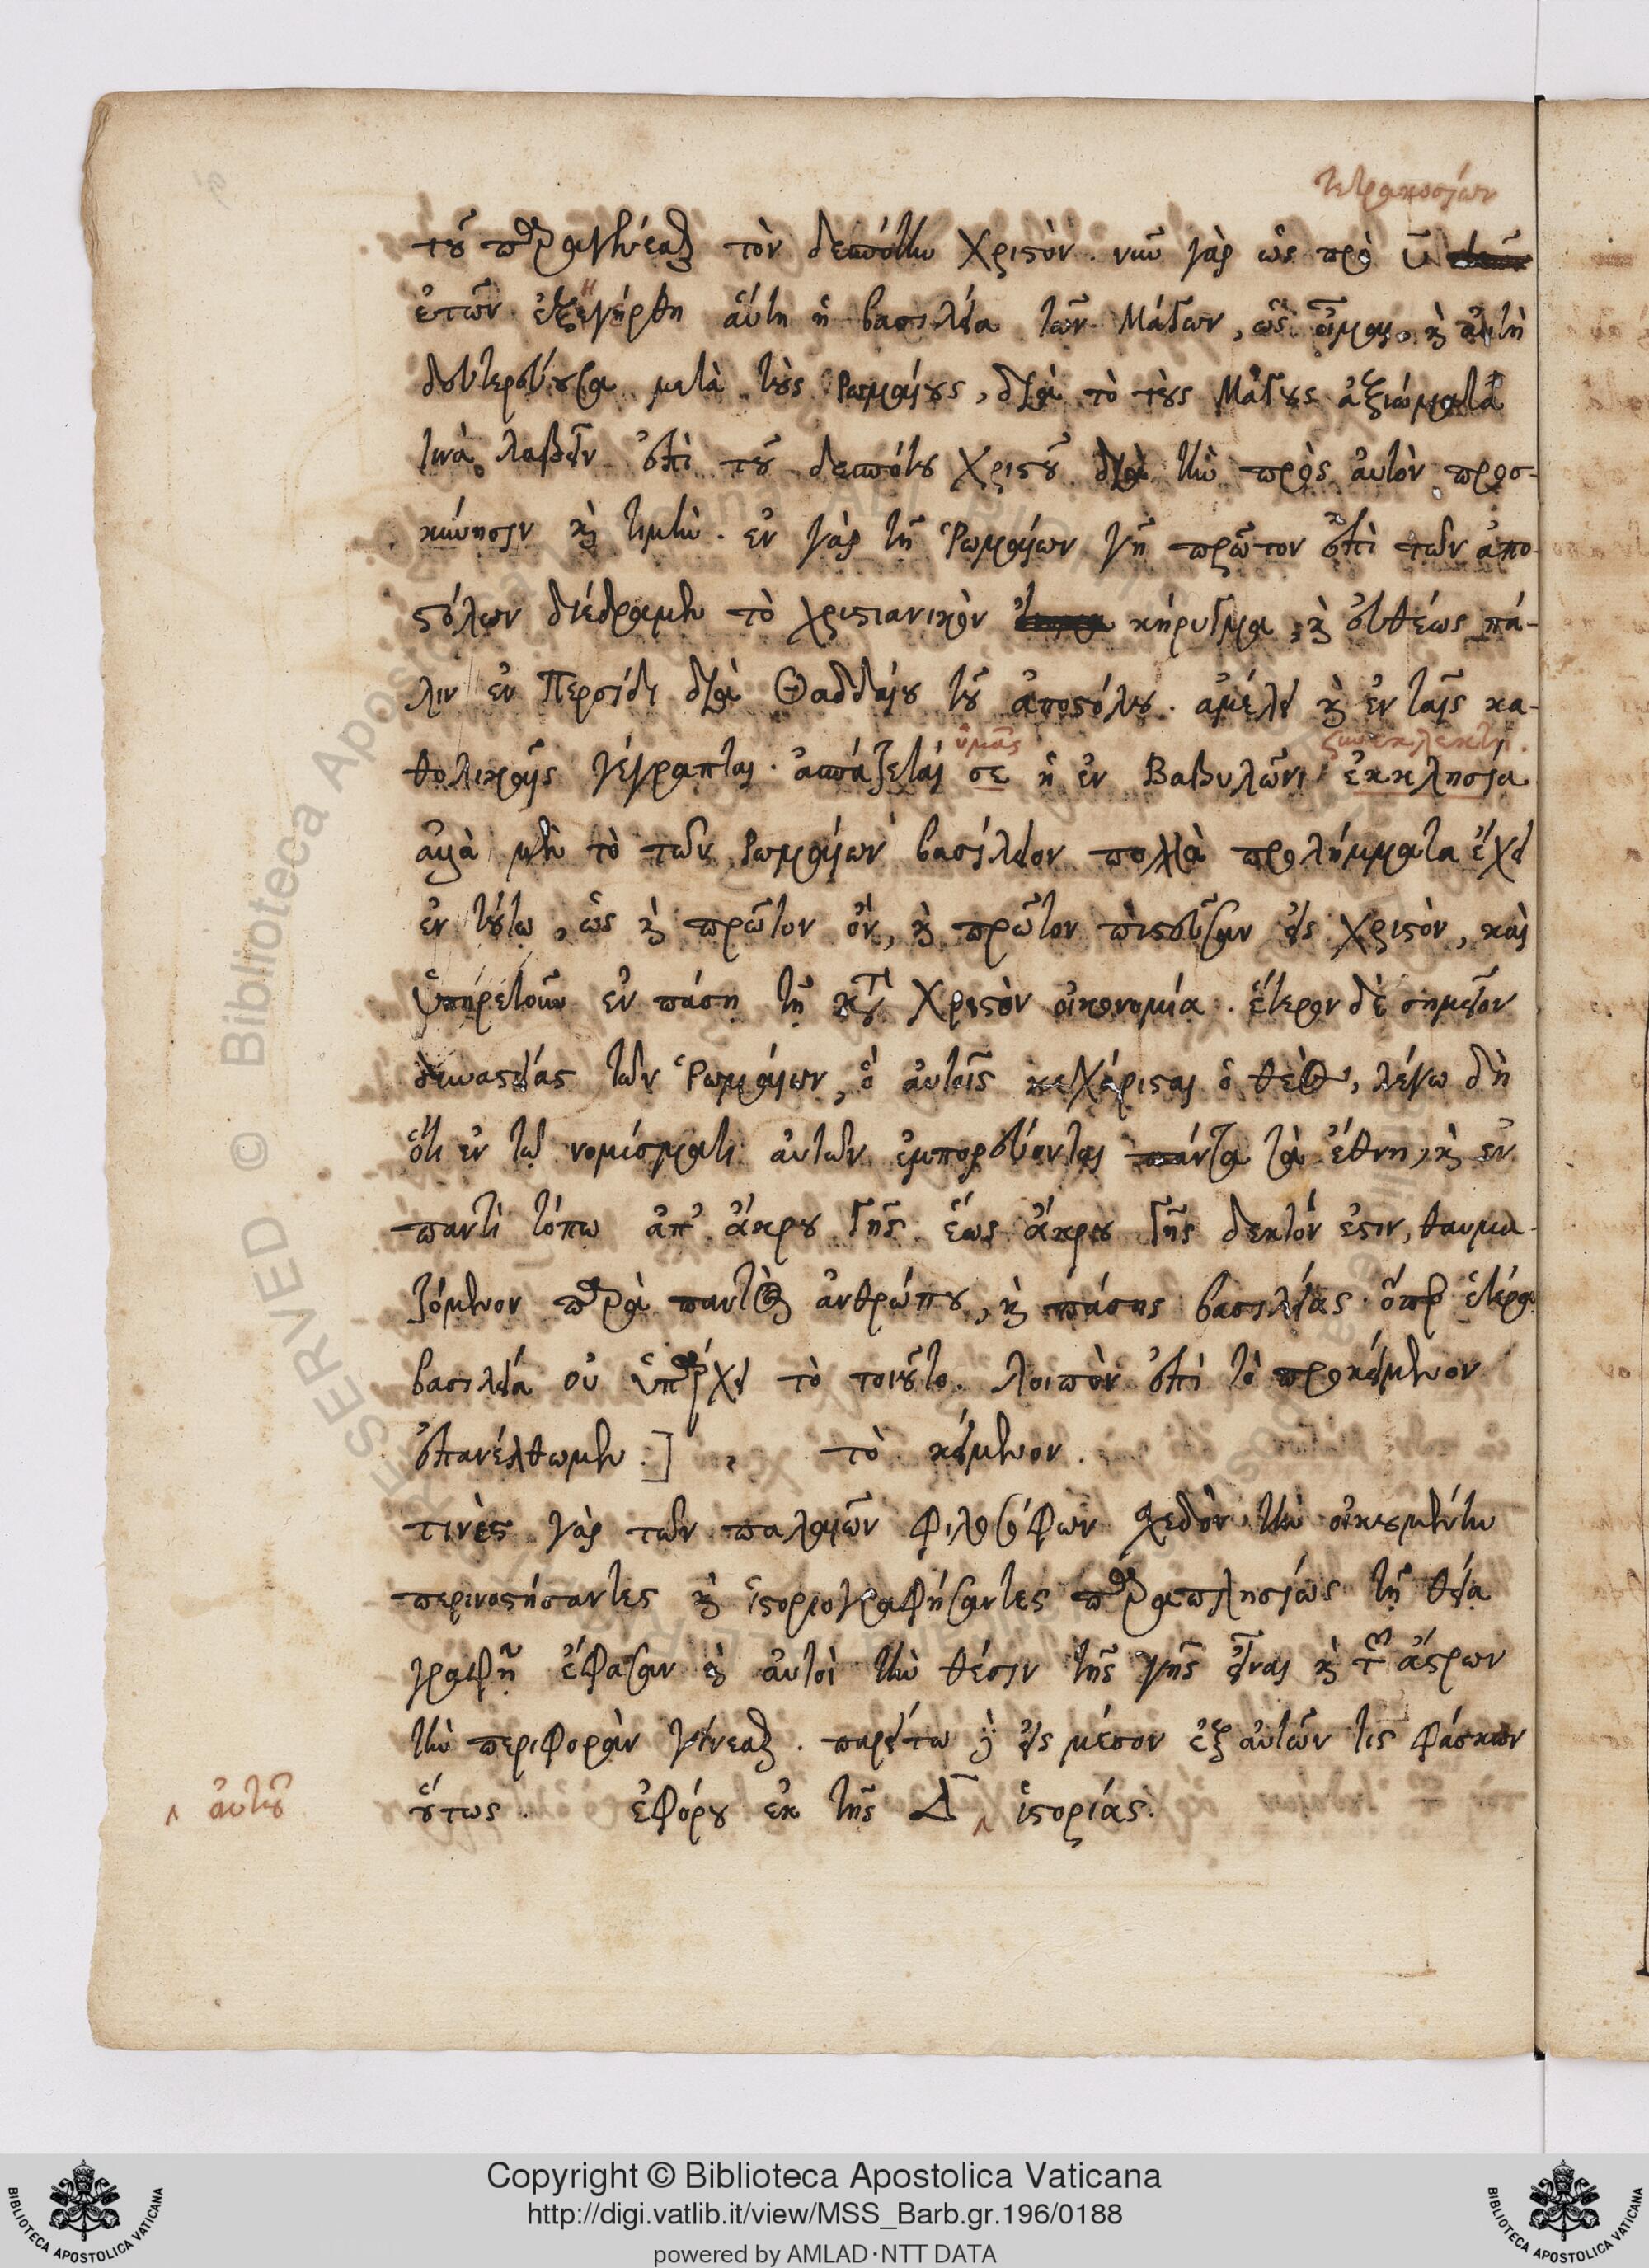 τετρακοσίων
τοῦ παραγενέσθαι τὸν δεσπότην Χριστόν. νῦν γὰρ ὡς πρὸ υ̅
ἐτῶν ἐξεγήρθη αὕτη ἡ βασιλεία τῶν Μάγων, ὡς οἶμαι, καὶ αὐτὴ
δευτερεύουσα μετὰ τοὺς Ῥωμαίους, διὰ τὸ τοὺς Μάγους ἀξιώματά
τινα λαβεῖν ἐπὶ τοῦ δεσπότου Χριστοῦ διὰ τὴν πρὸς αὐτὸν προσ-
κύνησιν καὶ τιμήν. ἐν γὰρ τῇ Ῥωμαίων γῇ πρῶτον ἐπὶ τῶν ἀπο-
στόλων διέδραμεν τὸ χριστιανικὸν κήρυγμα, καὶ εὐθέως πά-
λιν ἐν Περσίδι διὰ Θαδδαίου τοῦ ἀποστόλου. ἀμέλει καὶ ἐν ταῖς κα-
ὑμᾶς συνεκλεκτὴ.
θολικαῖς γέγραπται. ἀσπάζεταί σε ἡ ἐν Βαβυλῶνι ἐκκλησία
ἀλλὰ μὲν τὸ τῶν Ῥωμαίων βασίλειον πολλὰ προλήμματα ἔχει
ἐν τούτῳ, ὡς καὶ πρῶτον ὂν, καὶ πρῶτον πιστεῦσαν εἰς Χριστὸν, καὶ
ὑπηρετοῦν ἐν πάσῃ τῇ κατὰ Χριστὸν οἰκονομίᾳ. ἕτερον δὲ σημεῖον
δυναστείας τῶν Ῥωμαίων, ὃ αὐτοῖς κεχάρισται ὁ θεὸς, λέγω δὴ
ὅτι ἐν τῷ νομίσματι αὐτῶν ἐμπορεύονται πάντα τὰ ἔθνη, καὶ ἐν
παντὶ τόπῳ ἀπ' ἄκρου γῆς ἕως ἄκρου γῆς δεκτόν ἐστιν, θαυμα-
ζόμενον παρὰ παντὸς ἀνθρώπου, καὶ πάσης βασιλείας. ὅπερ ἑτέρᾳ
βασιλείᾳ οὐ ὑπάρχει τὸ τοιοῦτο. λοιπὸν ἐπὶ τὸ προκείμενον
ἐπανέλθωμεν.] τὸ κείμενον.
τινὲς γὰρ τῶν παλαιῶν φιλοσόφων σχεδὸν τὴν οἰκουμένην
περινοστήσαντες καὶ ἱστοριογραφήσαντες παραπλησίως τῇ θείᾳ
γραφῇ ἔφασαν καὶ αὐτοὶ τὴν θέσιν τῆς γῆς εἶναι καὶ τῶν ἄστρων
τὴν περιφορὰν γίνεσθαι. παρείτω γὰρ εἰς μέσον ἐξ αὐτῶν τις φάσκων
οὕτως. ἐφόρου ἐκ τῆς Δ̅ ‸ ἱστορίας.
‸ αὐτοῦ